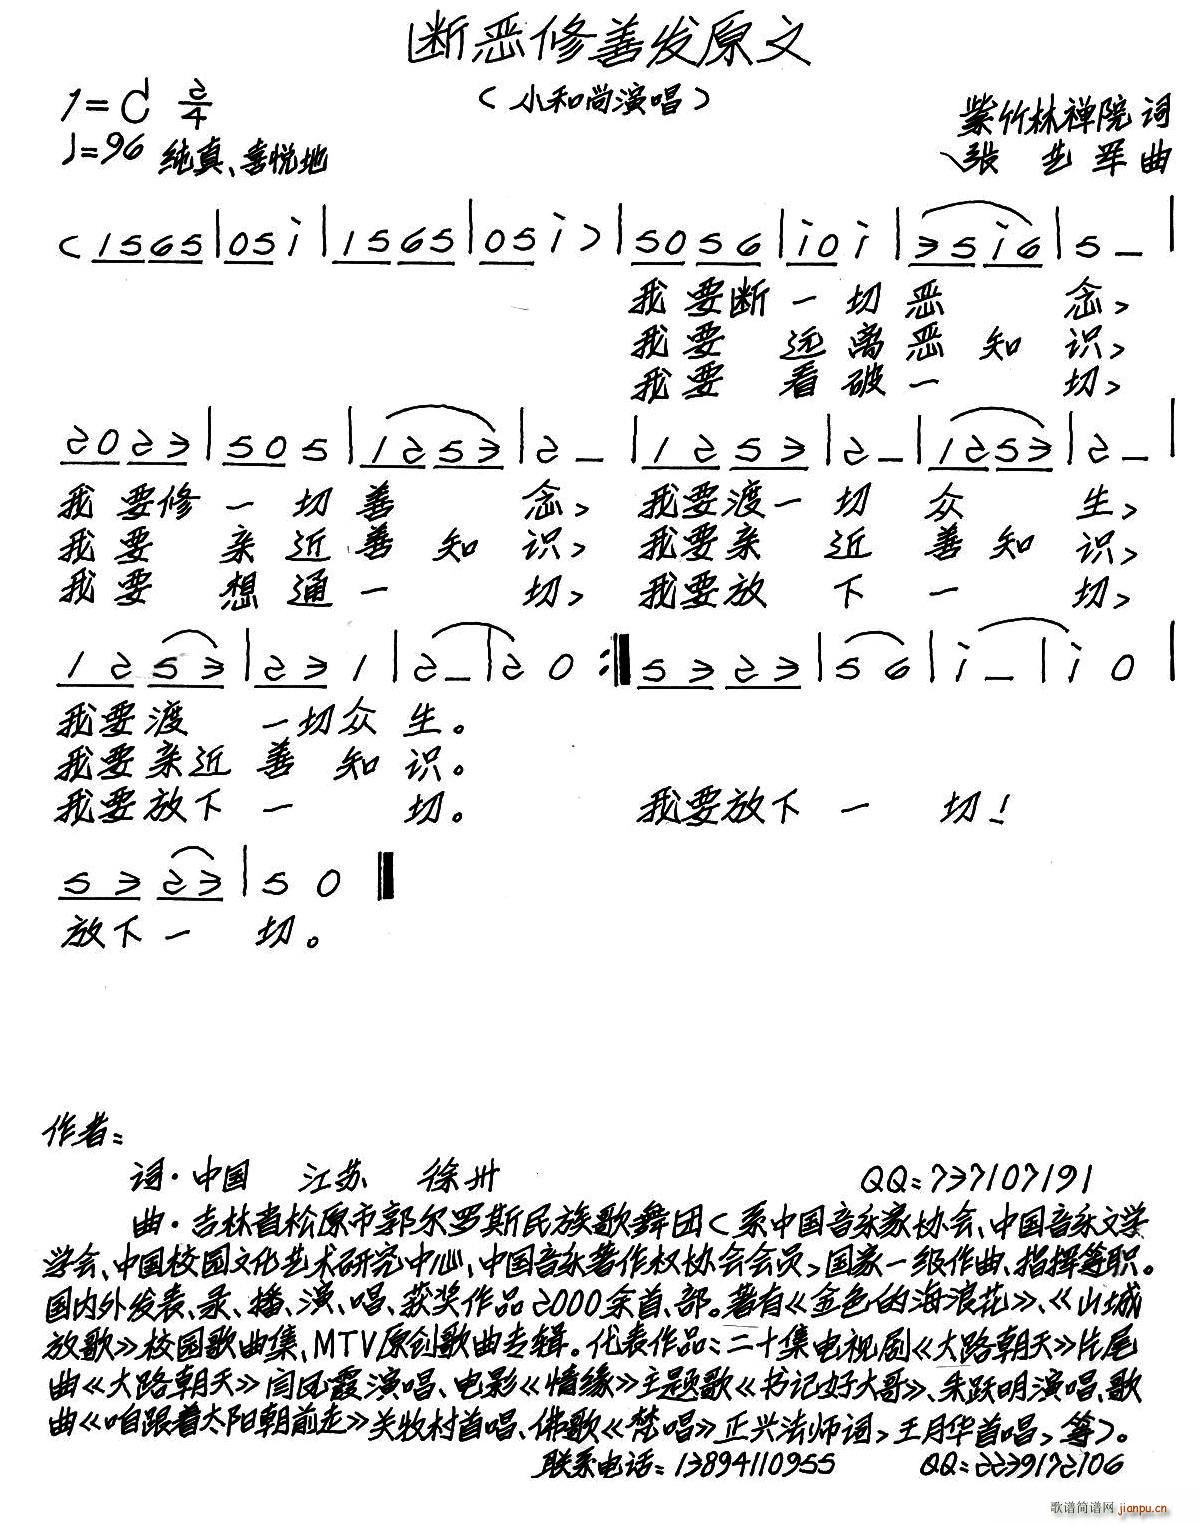 断恶修善发原文
(小和尚演唱)
1=C 2/4
♩=96 纯真、喜悦地
紫竹林禅院 词
张艺军 曲
(1565|05i|1565|05i)|5056|i0i|35i6|5–|
我要断一切恶念,
我要远离恶知识,
我要看破一切,
2023|505|1253|2–|1253|2–|1253|2–|
我要修一切善念,我要渡一切众生,
我要亲近善知识,我要亲近善知识,
我要想通一切,我要放下一切,
1253|231|2–|20:‖5323|56|i–|i0|
我要渡一切众生。
我要亲近善知识。
我要放下一切。我要放下一切!
5323|50‖
放下一切。
作者:
词·中国 江苏 徐州 QQ:737107191
曲·吉林省松原市郭尔罗斯民族歌舞团(系中国音乐家协会、中国音乐文学
学会、中国校园文化艺术研究中心、中国音乐著作权协会会员,国家一级作曲、指挥等职。
国内外发表、录、播、演、唱、获奖作品2000余首、部。著有《金色的海浪花》、《山城
放歌》校园歌曲集、MTV原创歌曲专辑。代表作品:二十集电视剧《大路朝天》片尾
曲《大路朝天》闫凤霞演唱、电影《情缘》主题歌《书记好大哥》、朱跃明演唱、歌
曲《咱跟着太阳朝前走》关牧村首唱、佛歌《梵唱》正兴法师词,王月华首唱,等)。
联系电话:13894110955 QQ:2239172106
歌谱简谱网
jianpu.cn